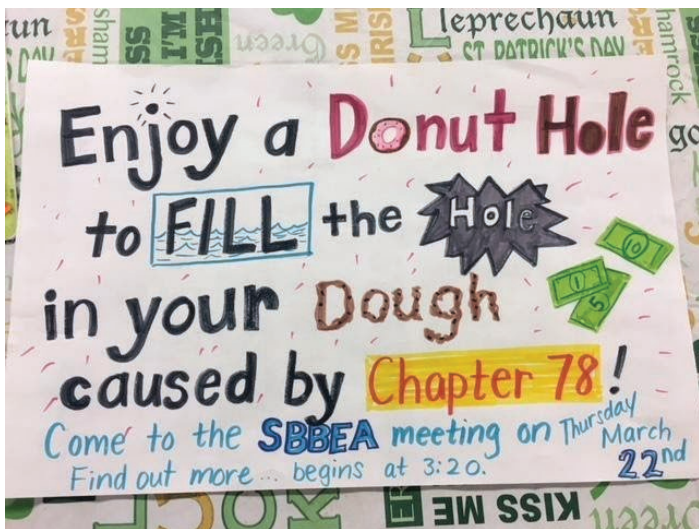 leprechaun
ST. PATRICK'S DAY
shamrock
Enjoy a Donut Hole
to FILL the Hole
in your Dough
10
1
5
caused by Chapter 78!
Come to the SBBEA meeting on Thursday
March
22nd
Find out more... begins at 3:20.
KISS ME